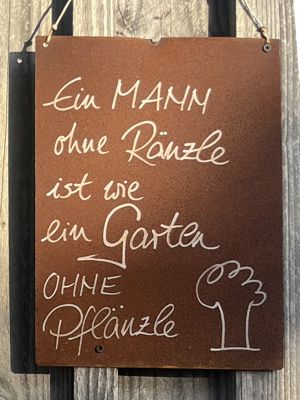 Ein MANN
ohne Ränzle
ist wie
ein Garten
OHNE
Pflänzle